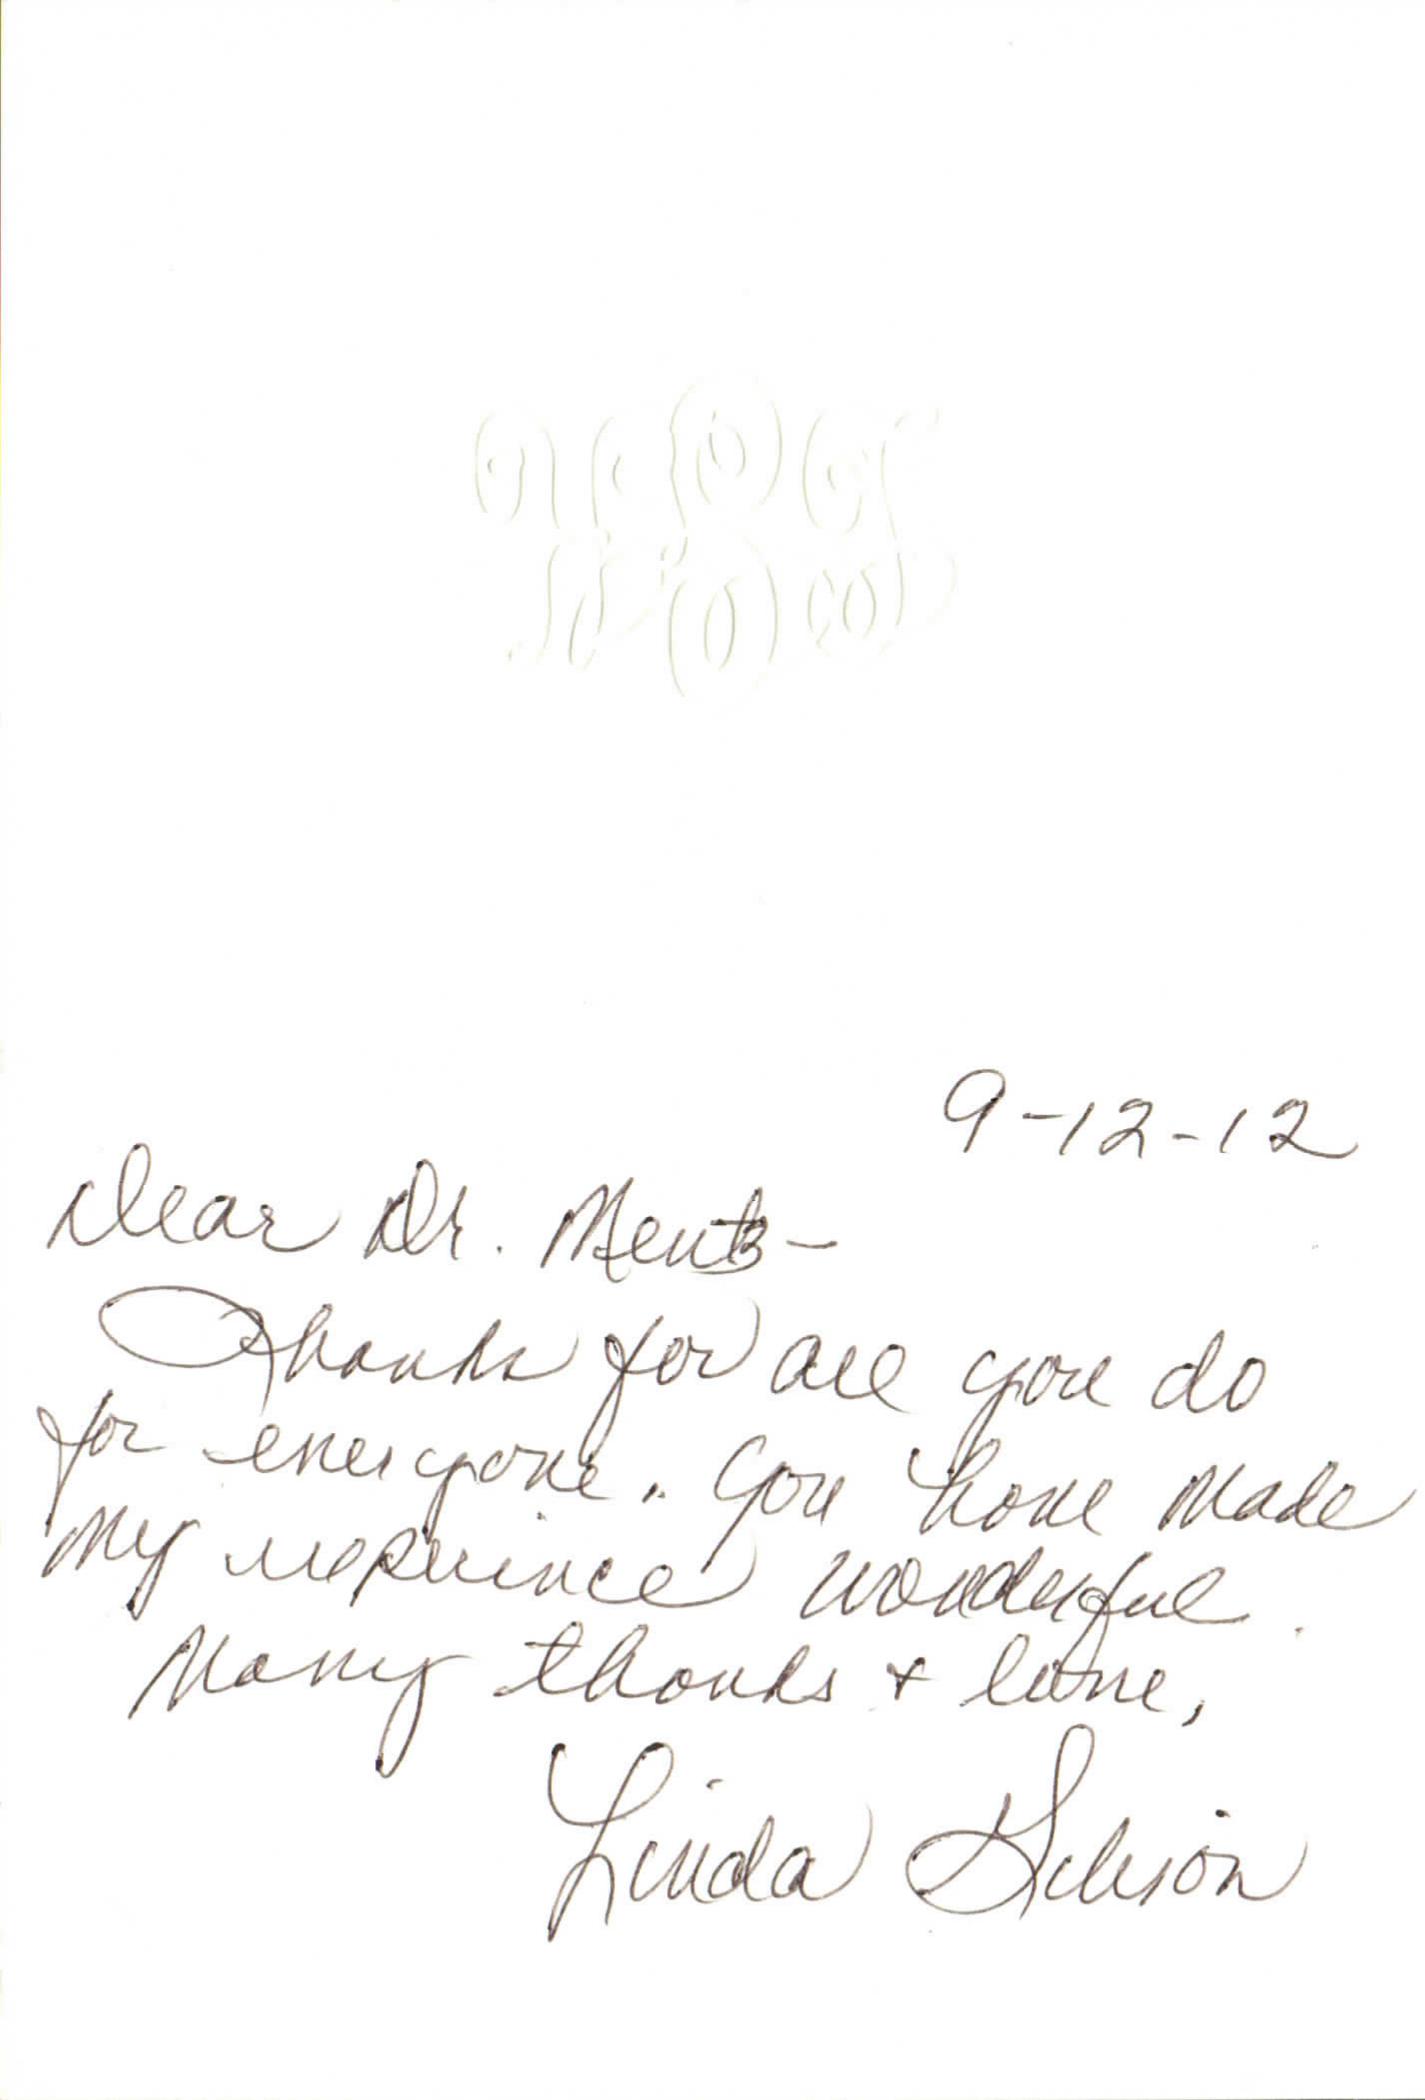 9-12-12
Dear Dr. Mentz-
Thanks for all you do
for everyone. You have made
my experience wonderful.
Many thanks & love,
Linda Gibson